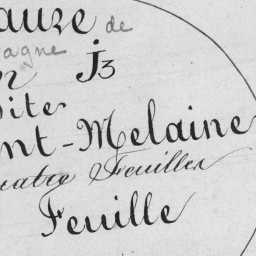 auze de
agne
n J3
Dite
nt-Melaine
uatre Feuilles
Feuille